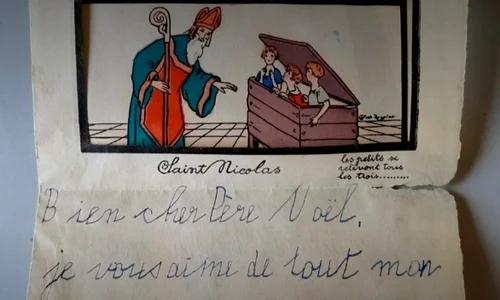 Saint Nicolas
les petits se
relèvent tous
les trois.........
Bien cher Père Noël,
je vous aime de tout mon